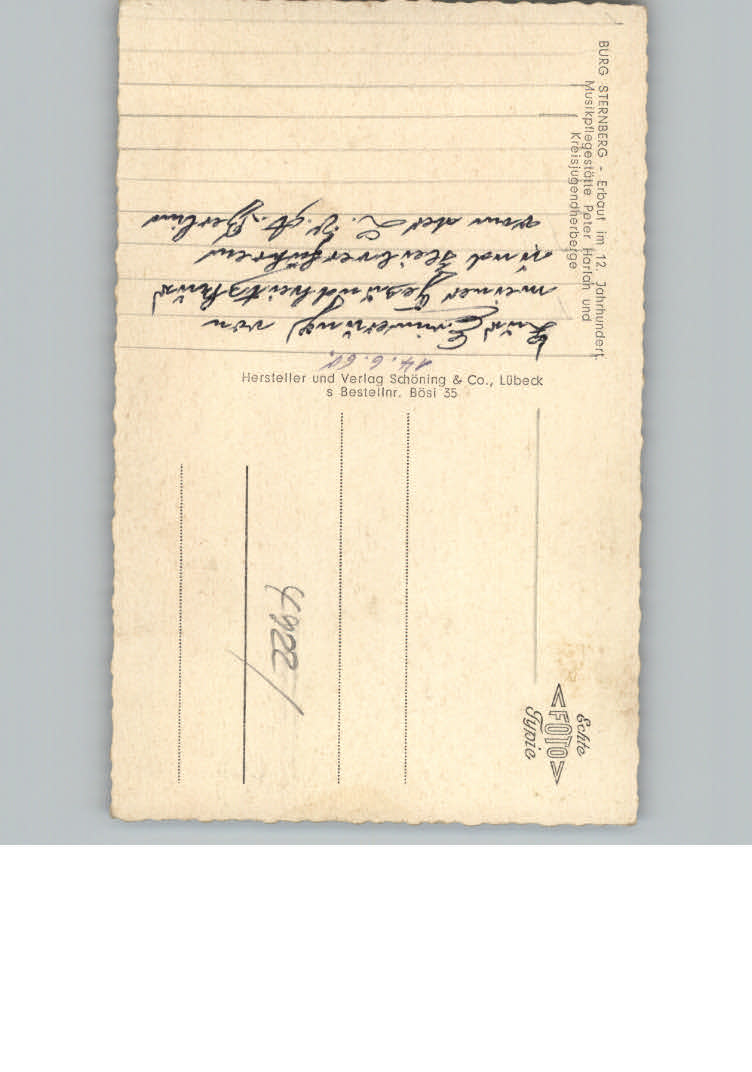 BURG STERNBERG - Erbaut im 12. Jahrhundert.
Musikpflegestätte Peter Harlan und
Kreisjugendherberge
14.6.60.
Zur Erinnerung von
meiner Gesundheitskur
und Heilverfahren
von der L. V. A. Berlin
Hersteller und Verlag Schöning & Co., Lübeck
s Bestellnr. Bösi 35
Echte
FOTO
Typie
4922